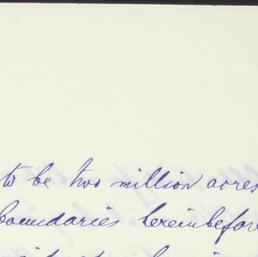 to be two million acres
boundaries hereinbefor